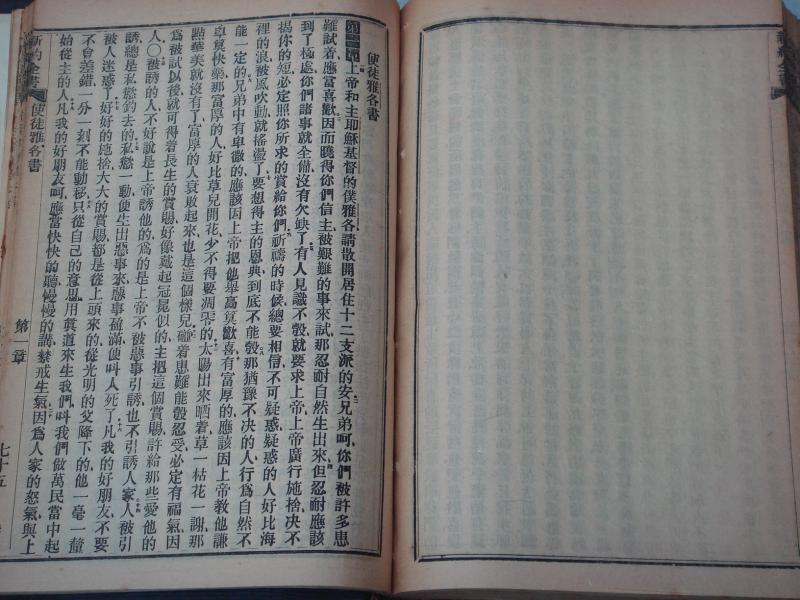 使徒雅各書
第一章上帝和主耶穌基督的僕雅各請散開居住十二支派的安兄弟呵、你們被許多患
難試着應當喜歡因而曉得你們信主被艱難的事來試那忍耐自然生出來但忍耐應該
到了極處你們諸事就全備沒有欠缺了有人見識不彀就要求上帝上帝廣行施捨决不
揭你的短必定照你所求的賞給你們祈禱的時候總要相信不可疑惑疑惑的人好比海
裡的浪被風吹動就搖盪了要想得主的恩典到底不能彀那猶豫不决的人行爲自然不
能一定的兄弟中有卑微的應該因上帝把他舉高算歡喜有富厚的應該因上帝教他謙
卑算快樂那富厚的人好比草兒開花少不得要凋零的太陽出來晒着草一枯花一謝那
點華美就沒有了富厚的人衰敗起來也是這個樣兒碰着患難能彀忍受必定有福氣因
爲被試以後就可得着長生的賞賜好像戴起冠冕似的主把這個賞賜許給那些愛他的
人○被誘的人不好說是上帝誘他的爲的是上帝不被惡事引誘也不引誘人家人被引
誘總是私慾釣去的私慾一動便生出惡事來惡事盈滿便叫人死了凡我的好朋友不要
被人迷惑了好好的施捨大大的賞賜都是從上頭來的從光明的父降下的他一毫一釐
不會差錯一分一刻不能動移只從自己的意思用眞道來生我們叫我們做萬民當中起
始從主的人凡我的好朋友呵應當快快的聽慢慢的講禁戒生氣因爲人家的怒氣與上
新約全書 使徒雅各書 第一章 七十五